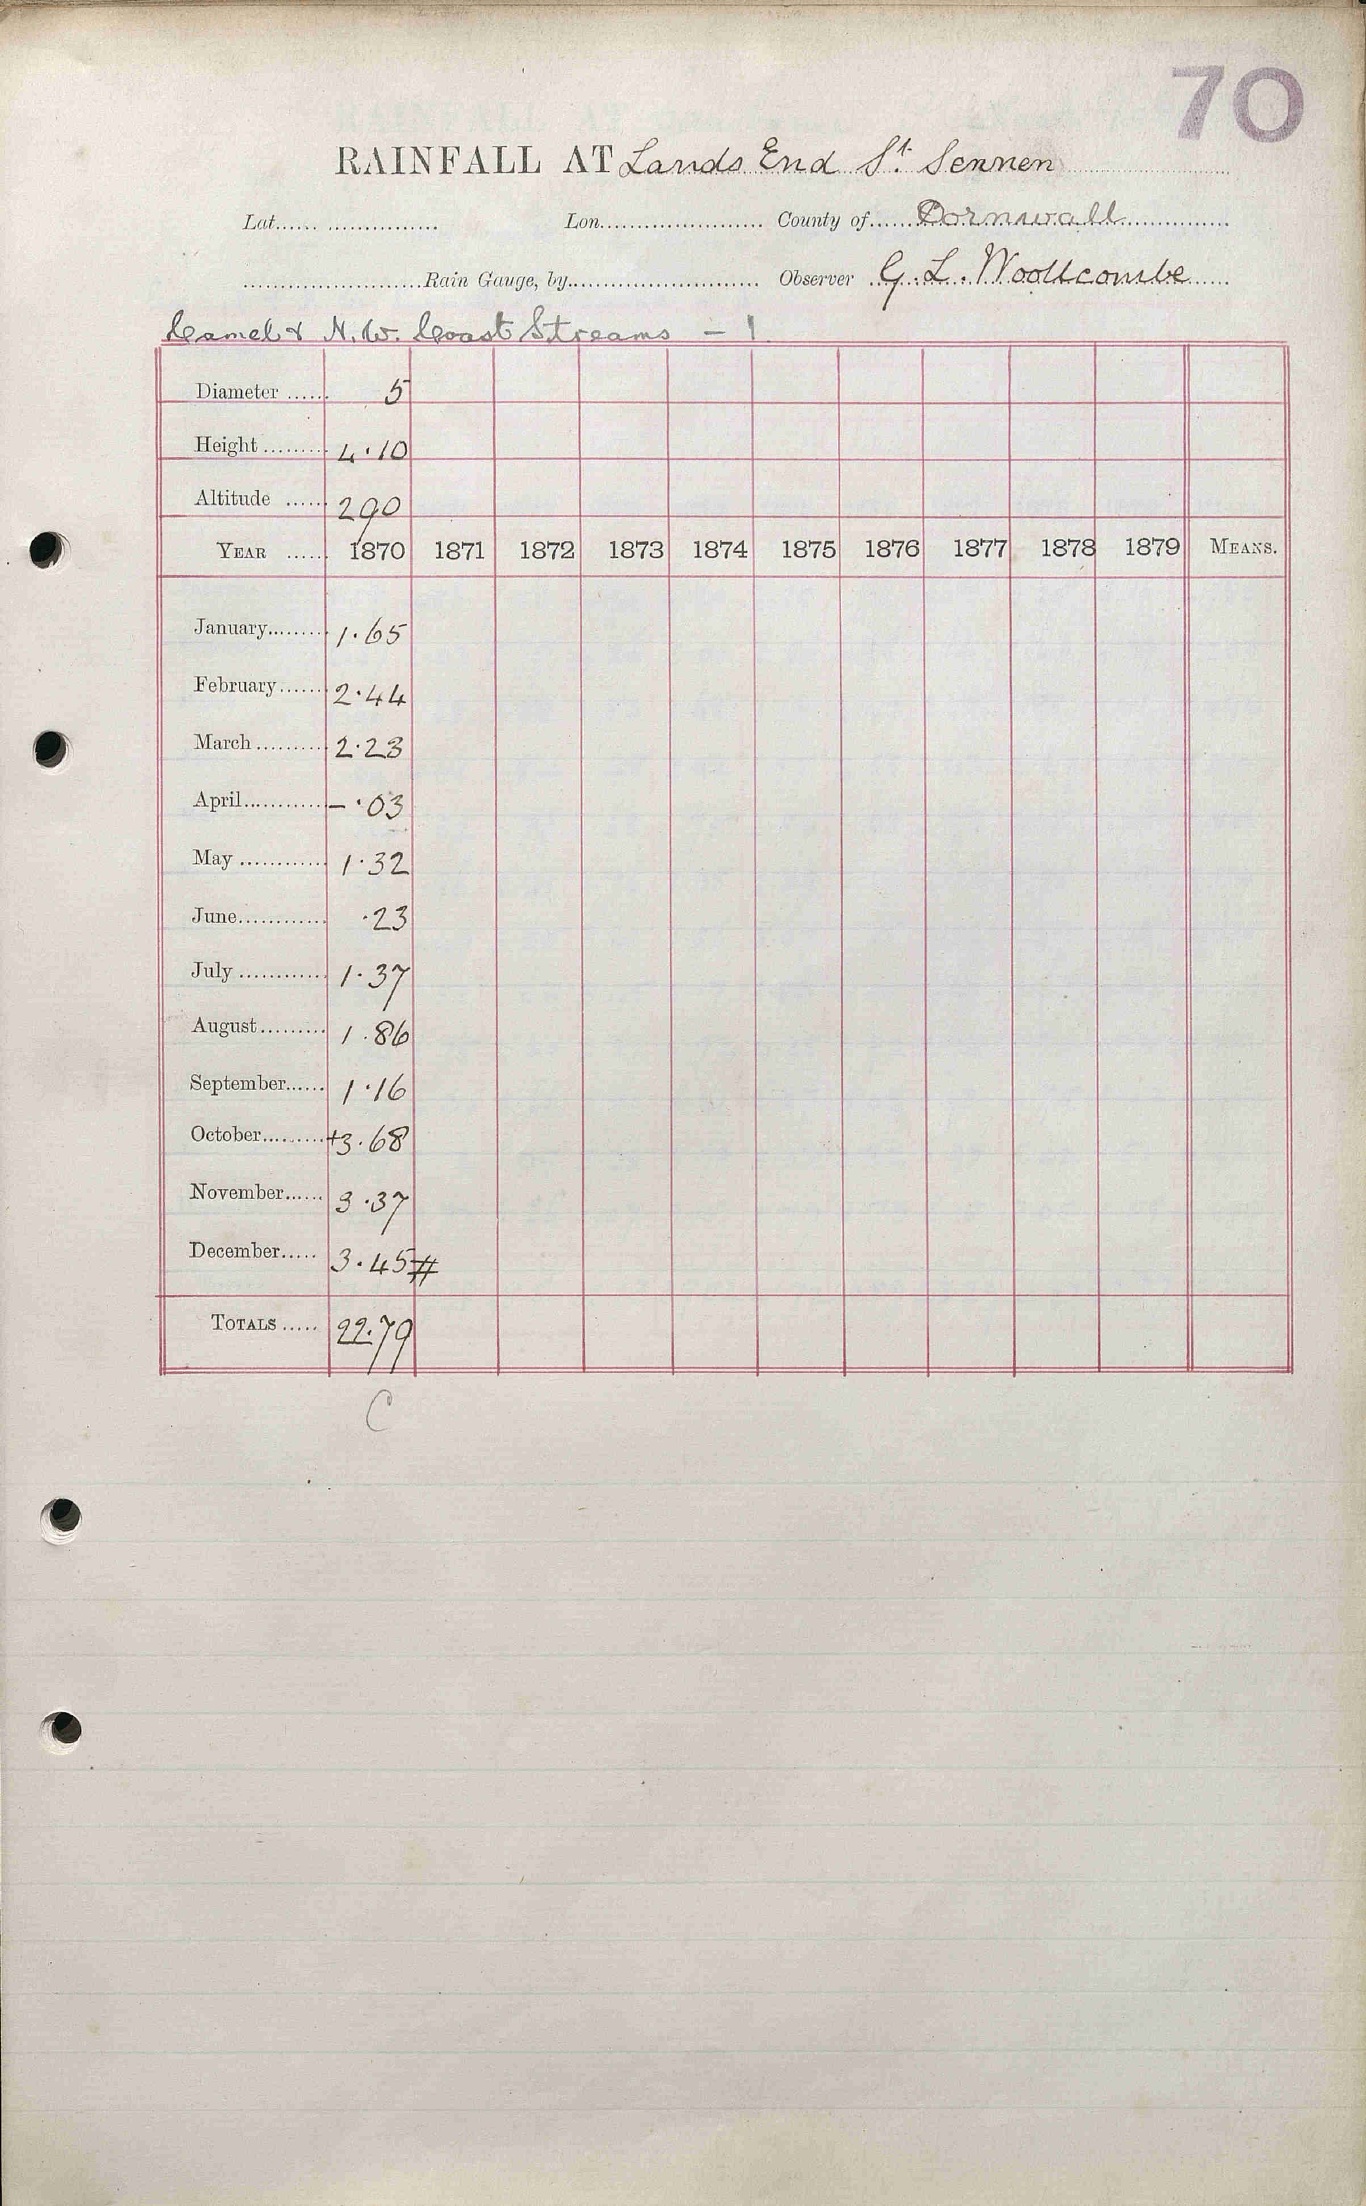 70
RAINFALL AT Lands End St. Sennen
Lat. Lon. County of Cornwall
Rain Gauge, by Observer G. L. Woollcombe
Camel & N.W. Coast Streams — 1
Diameter 5
Height 4.10
Altitude 290
YEAR 1870 1871 1872 1873 1874 1875 1876 1877 1878 1879 MEANS.
January 1.65
February 2.44
March 2.23
April – .03
May 1.32
June .23
July 1.37
August 1.86
September 1.16
October +3.68
November 3.37
December 3.45#
TOTALS 22.79
C